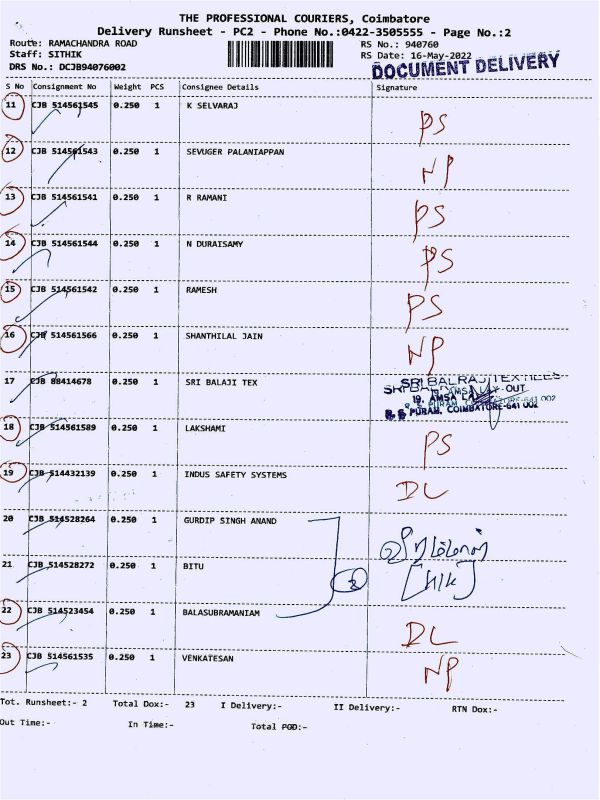 THE PROFESSIONAL COURIERS, Coimbatore
Delivery Runsheet - PC2 - Phone No.:0422-3505555 - Page No.:2
Route: RAMACHANDRA ROAD RS No.: 940760
Staff: SITHIK RS Date: 16-May-2022
DRS No.: DCJB94076002 DOCUMENT DELIVERY
S No Consignment No Weight PCS Consignee Details Signature
11 CJB 514561545 0.250 1 K SELVARAJ PS
12 CJB 514561543 0.250 1 SEVUGER PALANIAPPAN NP
13 CJB 514561541 0.250 1 R RAMANI PS
14 CJB 514561544 0.250 1 N DURAISAMY PS
15 CJB 514561542 0.250 1 RAMESH PS
16 CJB 514561566 0.250 1 SHANTHILAL JAIN NP
17 CJB 88414678 0.250 1 SRI BALAJI TEX SRI BALRAJ TEXTILES
19, AMSA LAY-OUT
R. S. PURAM, COIMBATORE-641 002
18 CJB 514561589 0.250 1 LAKSHAMI PS
19 CJB 514432139 0.250 1 INDUS SAFETY SYSTEMS DL
20 CJB 514528264 0.250 1 GURDIP SINGH ANAND
21 CJB 514528272 0.250 1 BITU
22 CJB 514523454 0.250 1 BALASUBRAMANIAM DL
23 CJB 514561535 0.250 1 VENKATESAN NP
Tot. Runsheet:- 2 Total Dox:- 23 I Delivery:- II Delivery:- RTN Dox:-
Out Time:- In Time:- Total POD:-